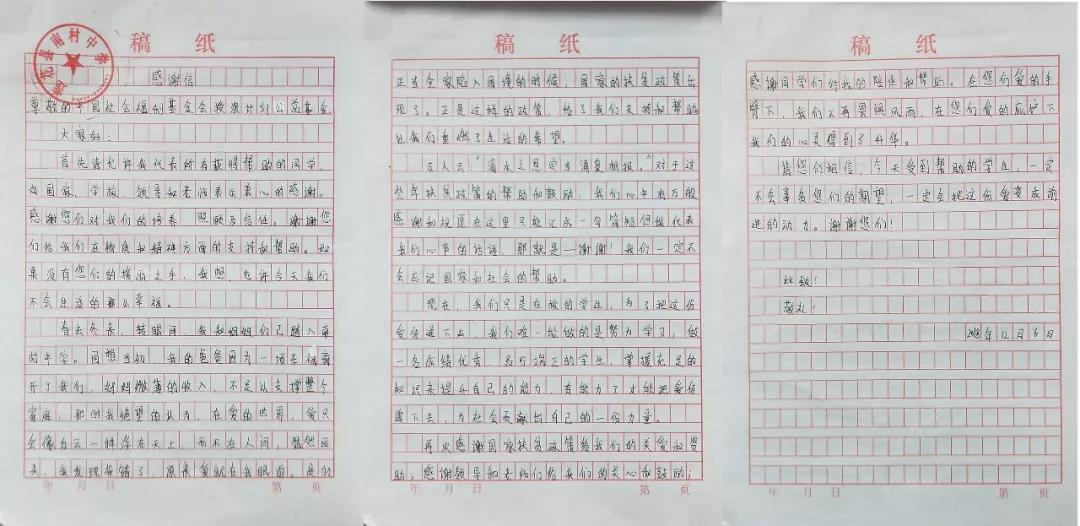 稿 纸
感谢信
尊敬的中国社会福利基金会 计划公益基金
大家好:
首先请允许我代表所有获得帮助的同学,
向国家、学校、领导和老师表示衷心的感谢。
感谢您们对我们的培养、照顾及信任。谢谢您
们给我们在物质和精神方面的支持和帮助。如
果没有您们的援助之手,我想,也许今天我们
不会生活的那么幸福。
春去冬来,转眼间,我和姐姐们已踏入
的年学。回想当初,我的爸爸因为一场车祸离
开了我们,妈妈微薄的收入,不足以支撑整个
家庭,那时我绝望的认为,在爱的世界,爱只
会像白云一样浮在天上,而不在人间。蓦然回
头,我发现我错了,原来爱就在我眼前。是的
年 月 日 第 页
稿 纸
正当全家陷入困境的时候,国家的扶贫政策出
现了。正是这样的政策,给了我们支持和帮助
让我们重燃了生活的希望。
古人云:“滴水之恩定当涌泉相报。”对于这
些年扶贫政策的帮助和鼓励,我们心中有万般
感谢和祝愿在这里只能汇成一句简短但能代表
我们心事的话语,那就是—谢谢!我们一定不
会忘记国家和社会的帮助。
现在,我们只是在校的学生,为了把这份
爱传递下去,我们唯一能做的是努力学习,做
一名成绩优秀,品行端正的学生,掌握充足的
知识来提升自己的能力,有能力了才能把爱传
递下去,为社会贡献出自己的一份力量。
再次感谢国家扶贫政策给我们的关爱和资
助,感谢领导和老师们给我们的关心和鼓励;
年 月 日 第 页
稿 纸
感谢同学们给我的陪伴和帮助。在您们爱的手
臂下,我们不再畏惧风雨,在您们爱的庇护下
我们的心灵得到了升华。
请您们相信,今天受到帮助的学生,一定
不会辜负您们的期望,一定会把这份爱变成前
进的动力。谢谢您们!
此致!
敬礼!
2018年12月6日
年 月 日 第 页